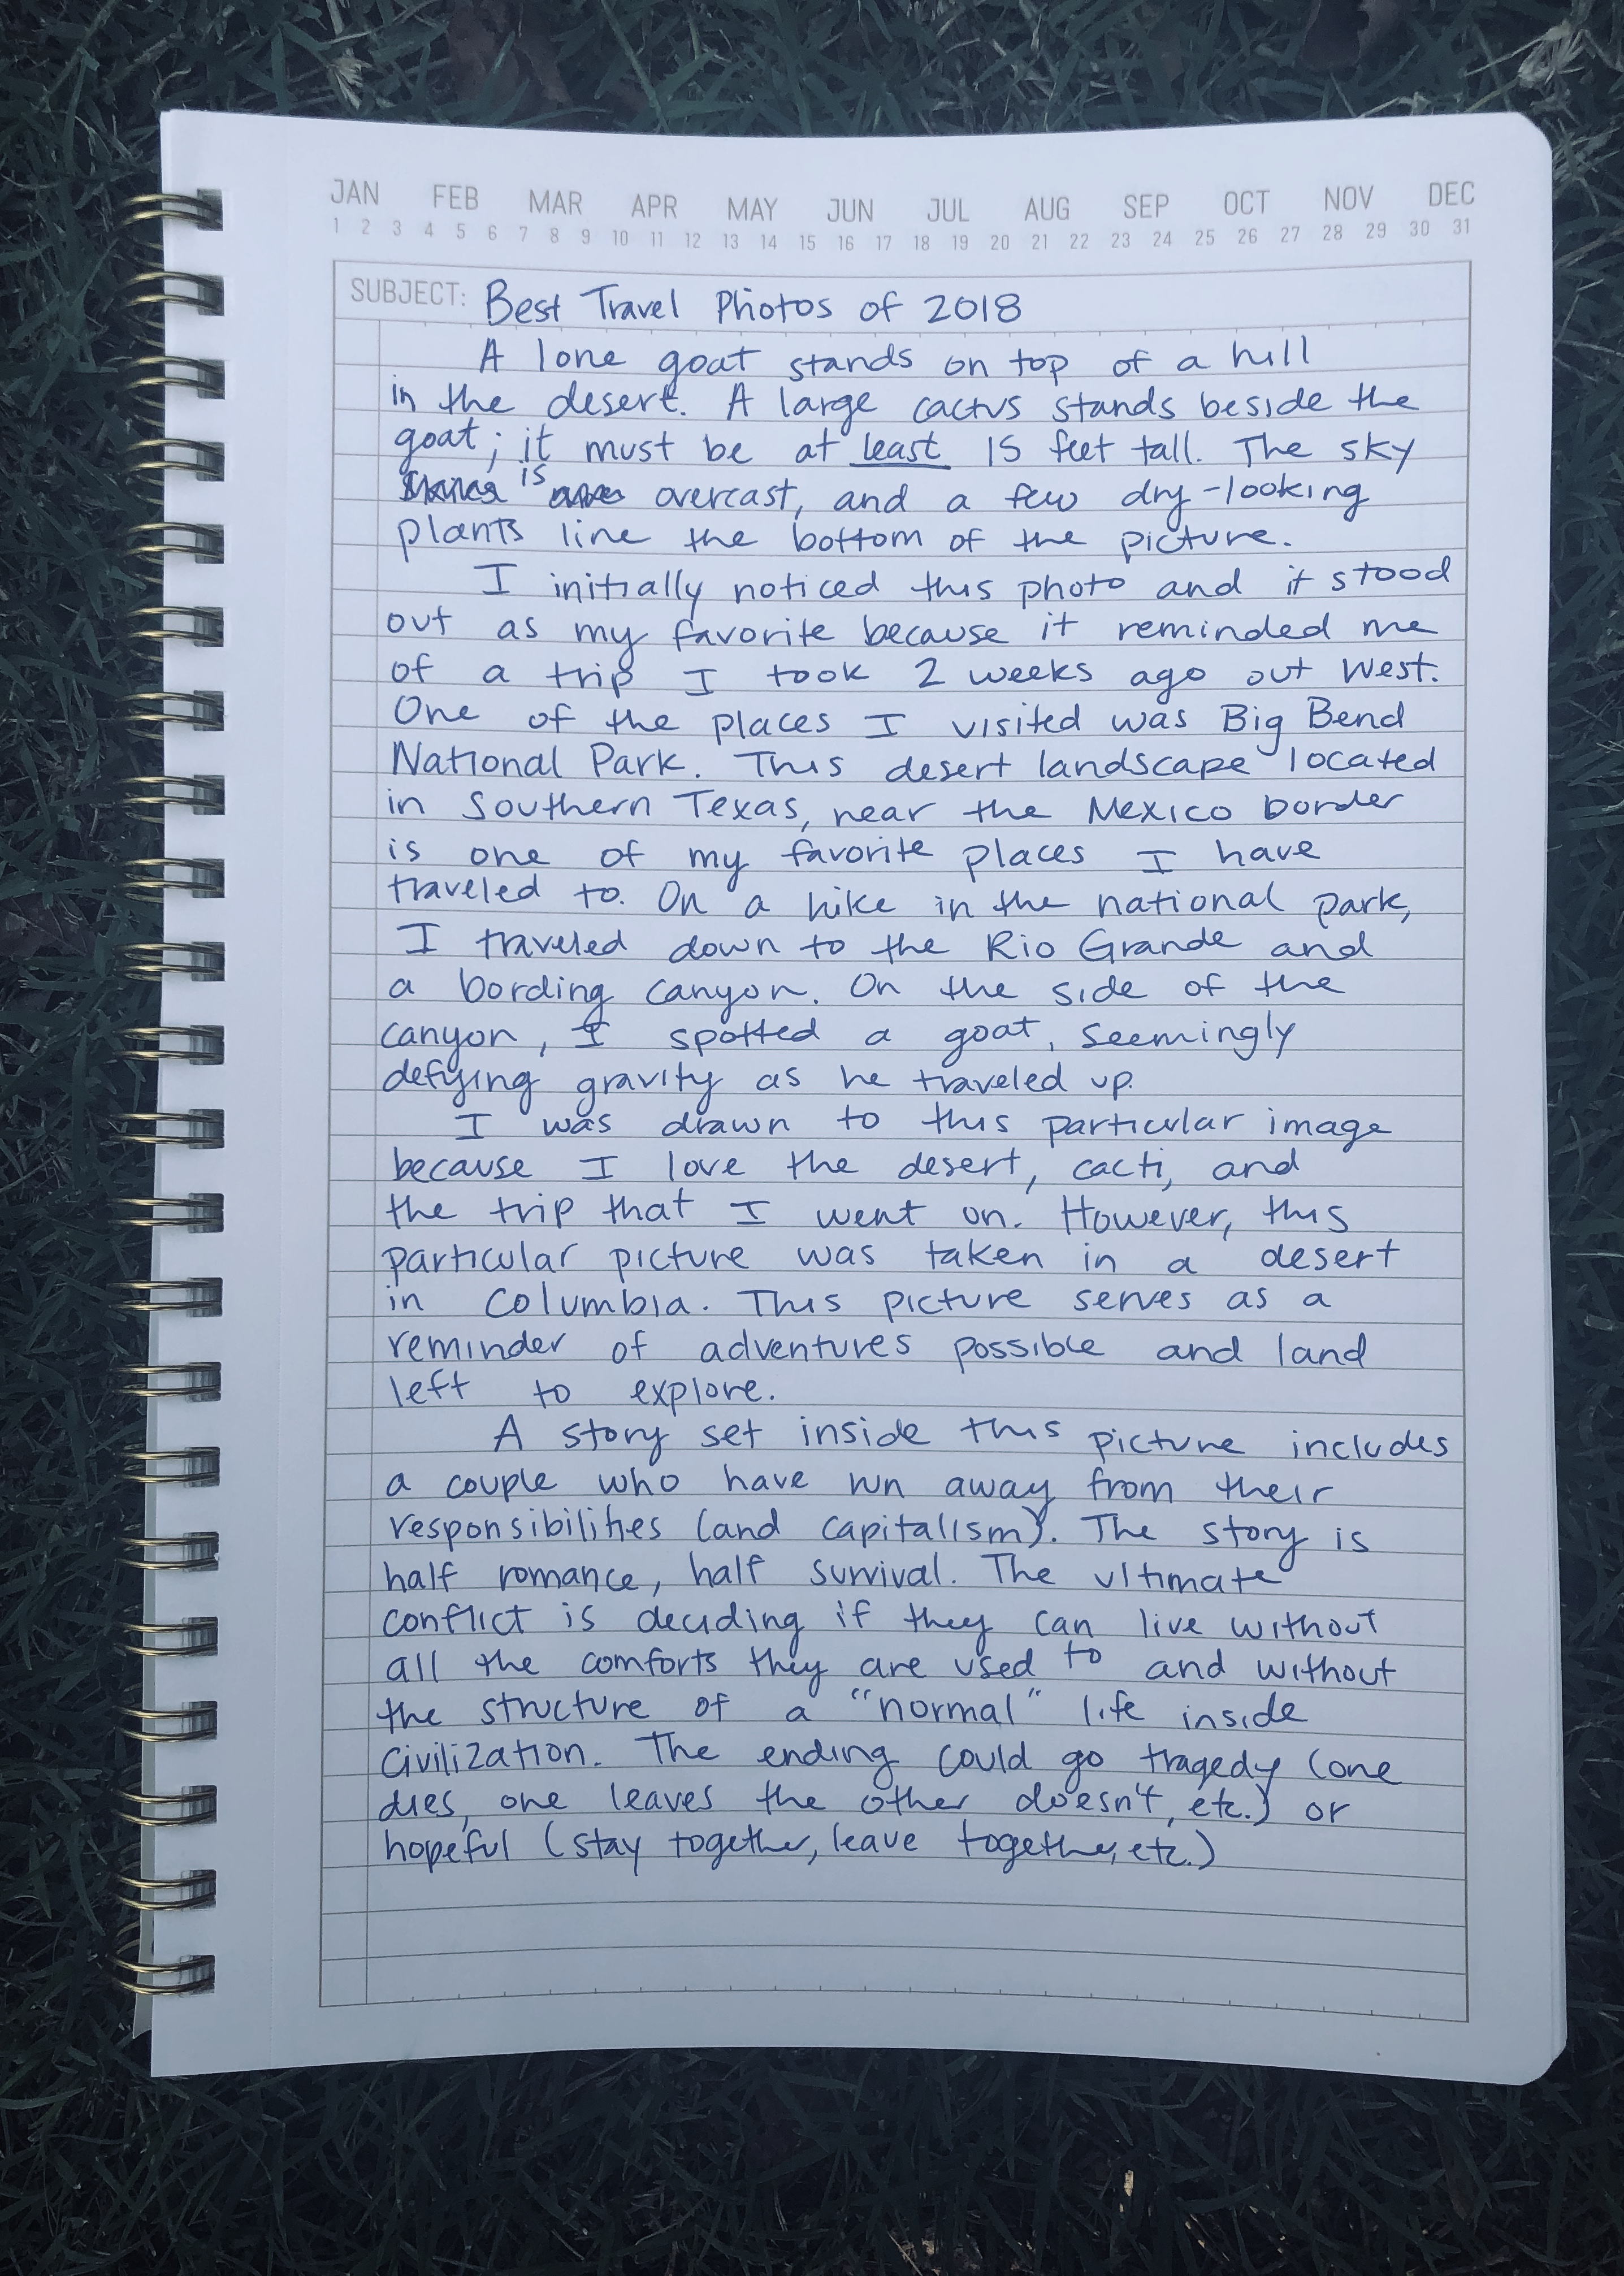 JAN FEB MAR APR MAY JUN JUL AUG SEP OCT NOV DEC
1 2 3 4 5 6 7 8 9 10 11 12 13 14 15 16 17 18 19 20 21 22 23 24 25 26 27 28 29 30 31
SUBJECT: Best Travel Photos of 2018
A lone goat stands on top of a hill
in the desert. A large cactus stands beside the
goat; it must be at least 15 feet tall. The sky
is overcast, and a few dry-looking
plants line the bottom of the picture.
I initially noticed this photo and it stood
out as my favorite because it reminded me
of a trip I took 2 weeks ago out West.
One of the places I visited was Big Bend
National Park. This desert landscape located
in Southern Texas, near the Mexico border
is one of my favorite places I have
traveled to. On a hike in the national park,
I traveled down to the Rio Grande and
a bording canyon. On the side of the
canyon, I spotted a goat, seemingly
defying gravity as he traveled up.
I was drawn to this particular image
because I love the desert, cacti, and
the trip that I went on. However, this
particular picture was taken in a desert
in Columbia. This picture serves as a
reminder of adventures possible and land
left to explore.
A story set inside this picture includes
a couple who have run away from their
responsibilities (and capitalism). The story is
half romance, half survival. The ultimate
conflict is deciding if they can live without
all the comforts they are used to and without
the structure of a "normal" life inside
civilization. The ending could go tragedy (one
dies, one leaves the other doesn't, etc.) or
hopeful (stay together, leave together, etc.)